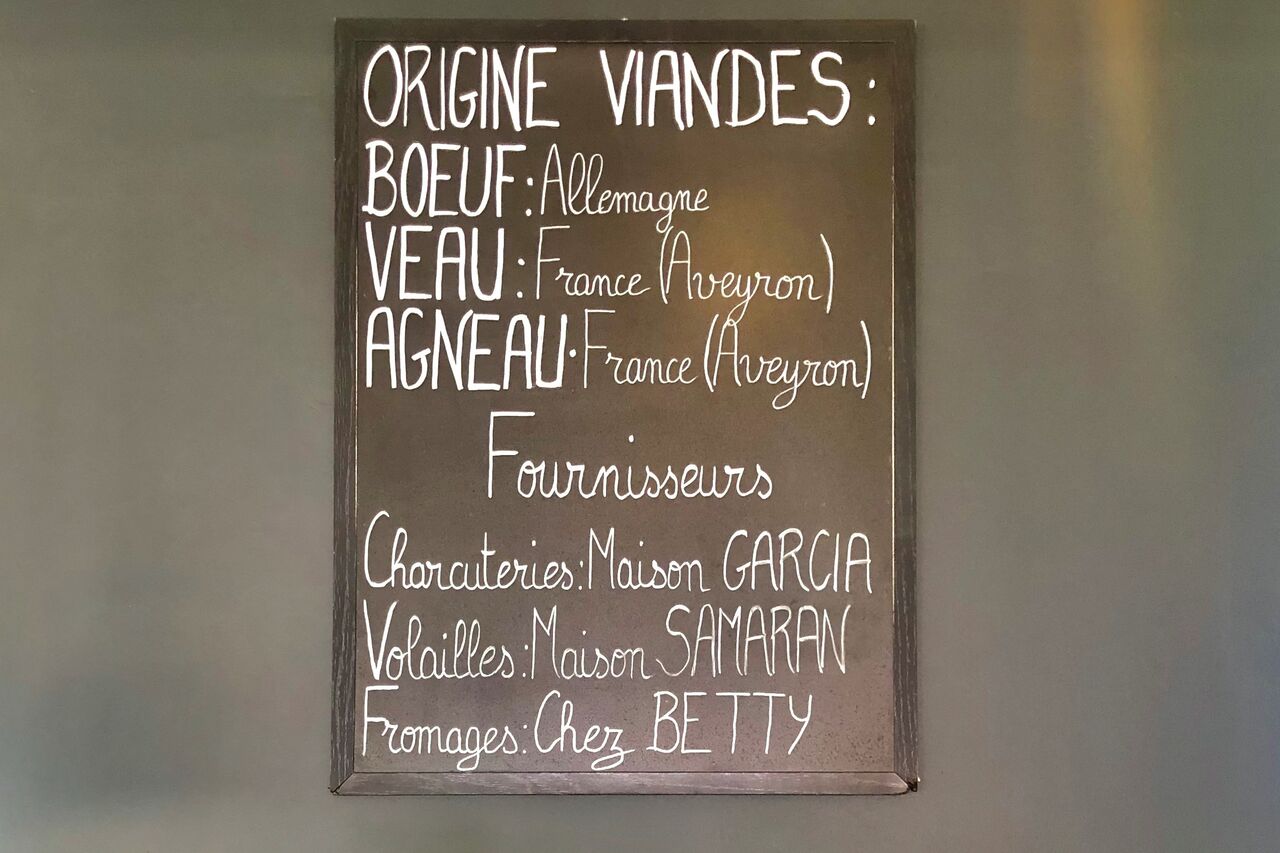 ORIGINE VIANDES:
BOEUF: Allemagne
VEAU: France (Aveyron)
AGNEAU. France (Aveyron)
Fournisseurs
Charcuteries: Maison GARCIA
Volailles: Maison SAMARAN
Fromages: Chez BETTY